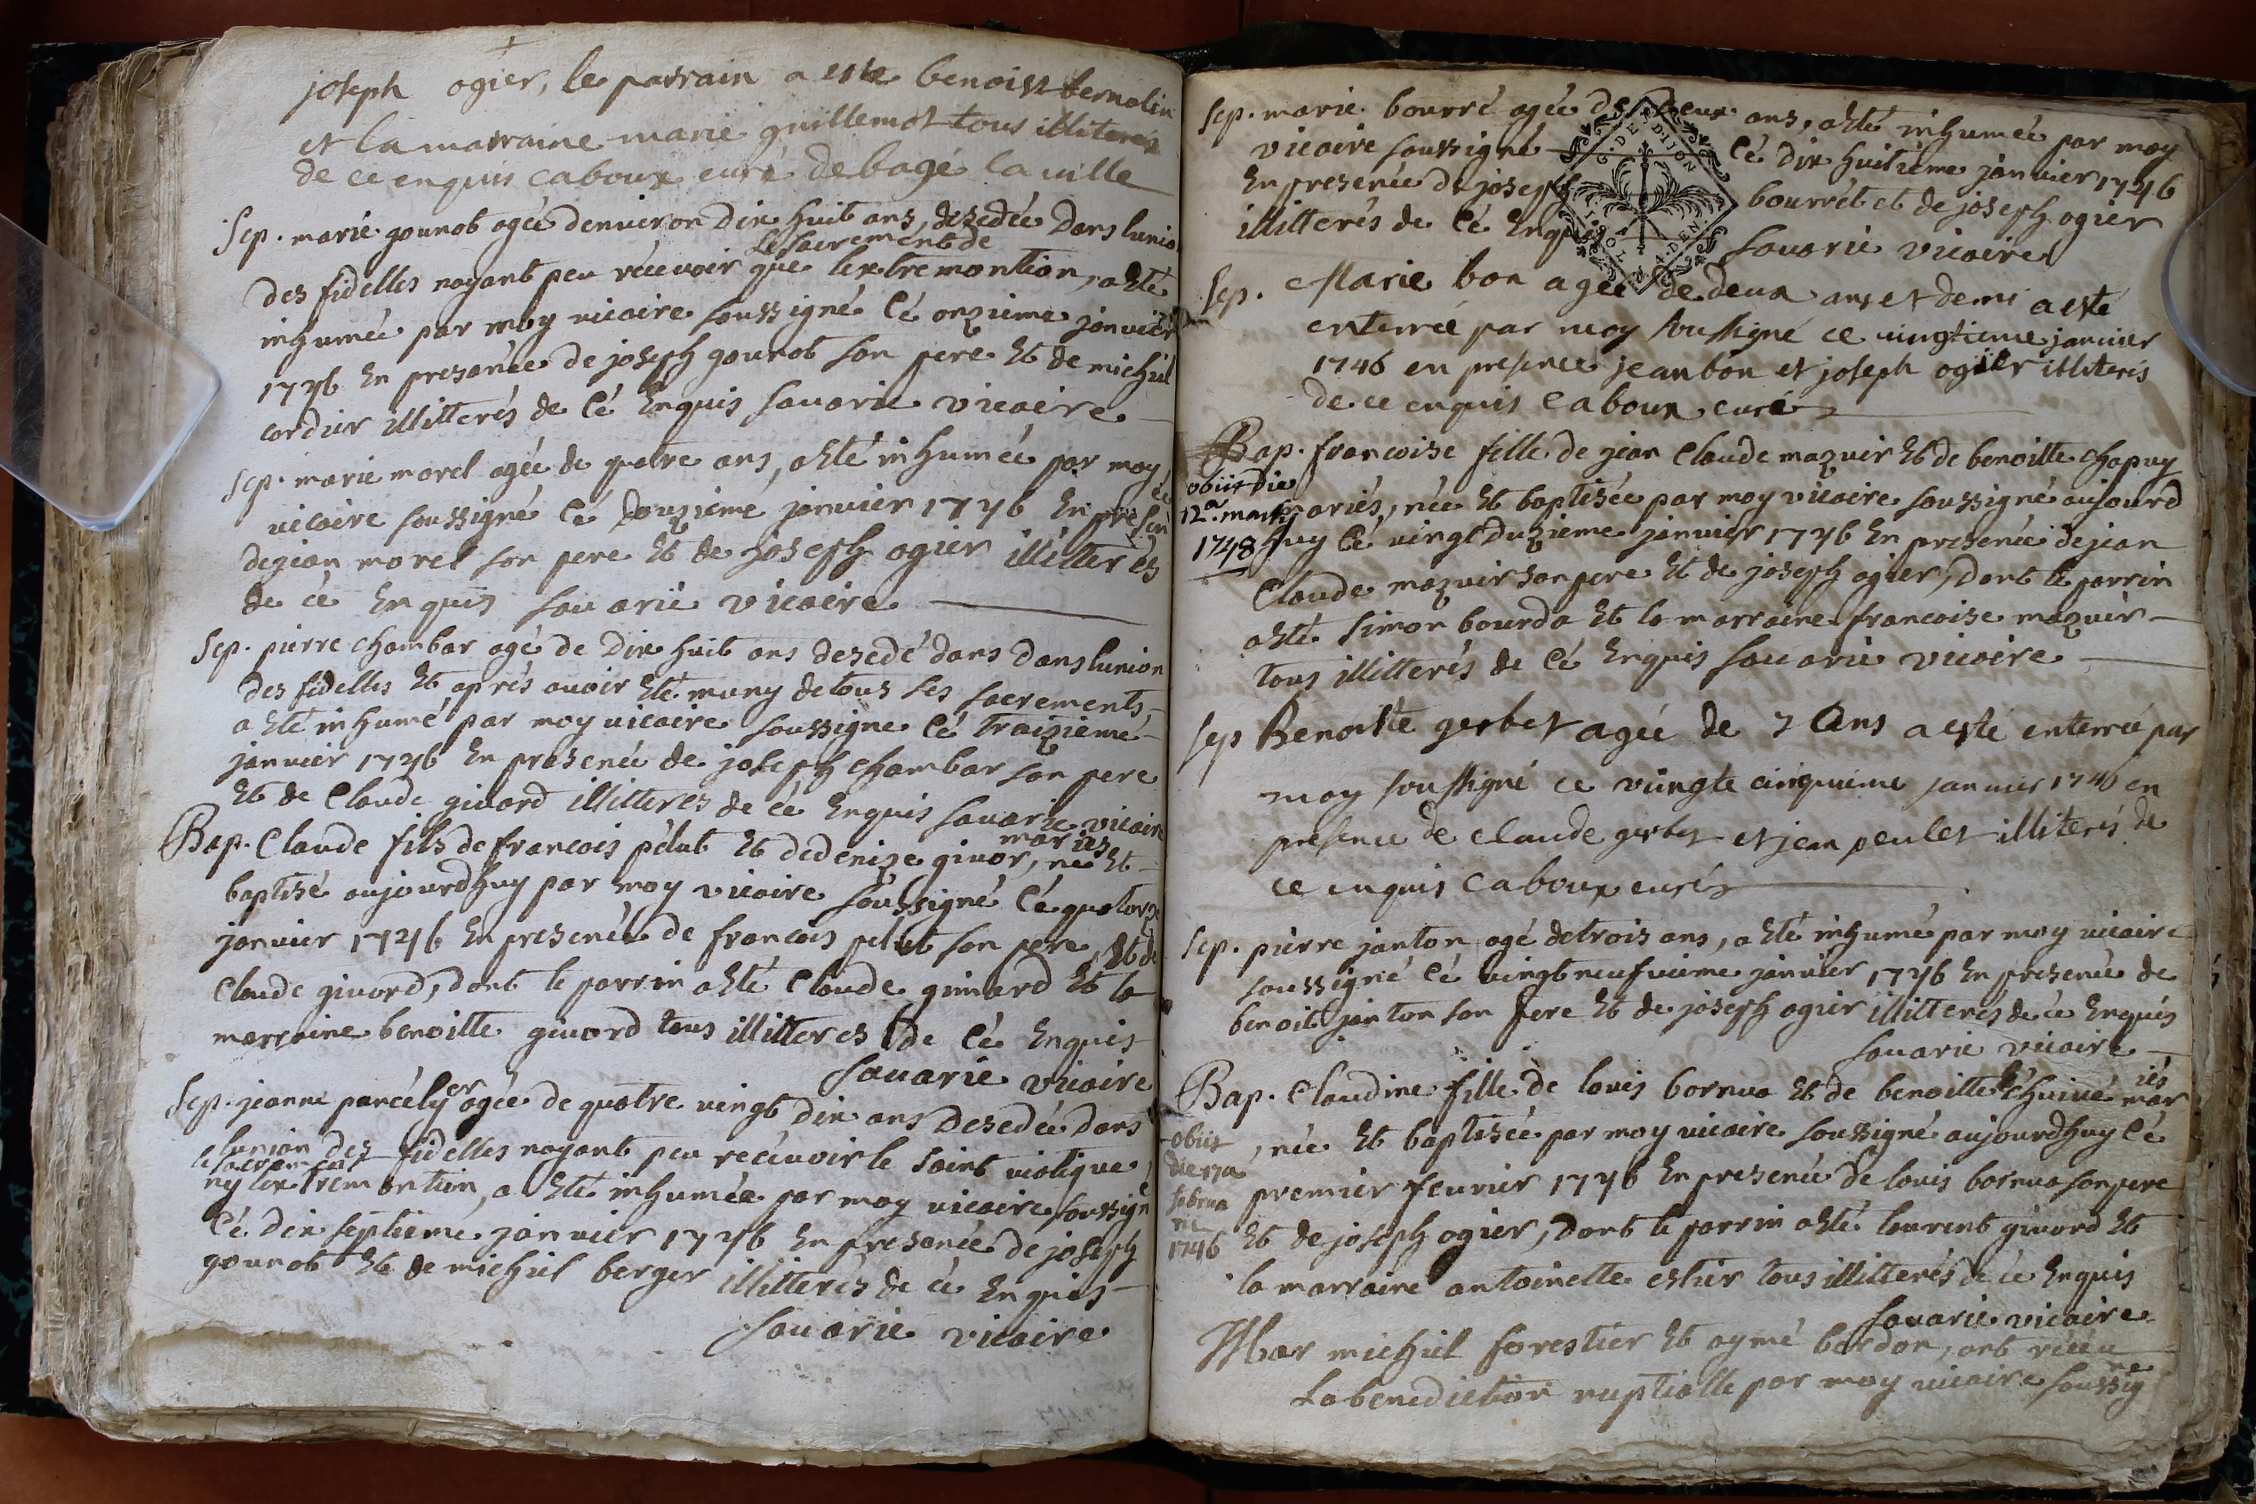 joseph ogier, le parrain a este benoist bernolin
et la marraine marie guillemot tous illiterés
de ce enquis caboux curé de bagé la ville
Sep. marie gounot agée denviron dix huit ans, dezedée dans lunion
des fidelles nayant peu récevoir que le sacrement de lextremontion, a êté
inhumée par moy vicaire soussigné cé onzieme janvier
1746 En presanée de joseph gounot son pere Et de michiel
cordier illitterés de cé Enquis savarie vicaire
Sep. marie morel agée de quatre ans, a êté inhumée par moy
vicaire soussigné cé douzieme janvier 1746 En presen
ce
de jean morel son pere Et de joseph ogier illitterés
de cé Enquis savarie vicaire
Sep. pierre chambar agé de dix huit ans dezedé dans dans lunion
des fidelles Et aprés avoir êté muny de tous ses sacrements,
a êté inhumé par moy vicaire soussigne cé traizieme
janvier 1746 En presenée de joseph chambar son pere
Et de Claude givord illitteres de cé Enquis savarie vicaire
Bap. Claude fils de francois pélut Et de denize givor, mariés né Et
baptisé aujourdhuy par moy vicaire soussigné cé quatorze
janvier 1746 En presenée de francois pelut son pere, Et de
Claude givord, dont le parrin a êté Claude gimard Et la
marraine benoitte givord tous illitteres de cé Enquis
savarie vicaire
Sep. jeanne parcély agée de quatre vingt dix ans dezedée dans
lunion des fidelles nayant peu recéuvoir le saint viatique,
le sacrement
ny lextremontion, a êté inhumée par moy vicaire soussigné
cé dix septieme janvier 1746 En presanée de joseph
gounot Et de michiel berger illitterés de cé Enquis
savarie vicaire
Sep. marie bourré agée de deux ans, a êté inhumée par moy
vicaire soussigné cé dix huitieme janvier 1746
En presenée de joseph bourrét et de joseph ogier
illitterés de cé Enquis savarie vicaire
G. DE DIJON
Sep. Marie bon agée de deux ans et demi a esté
enterrée par moy soussigné ce vingtieme janvier
1746 en presence jean bon et joseph ogier illiterés
de ce enquis caboux curé
Bap. francoise fille de jean Claude mazuir Et de benoitte chapuy
obiit die
12a. martÿ
1748
mariés, née Et baptisée par moy vicaire soussigné aujourd
huy cé vingt duzieme janvier 1746 En presenée de jean
Claude mazuir son pere Et de joseph ogier, dont le parrin
a êté Simon bourda Et la marraine francoise mazuir
tous illitterés de cé Enquis savarie vicaire
Sep Benoiste gerbet agée de 7 ans a esté enterrée par
moy soussigné ce vingte cinquieme janvier 1746 en
presence de claude gerbet et jean peulet illiterés de
ce enquis caboux curé
Sep. pierre janton agé de trois ans, a êté inhumé par moy vicaire
soussigné cé vingt neufvieme janvier 1746 En presenée de
benoit janton son pere Et de joseph ogier illitterés de cé Enquis
savarie vicaire
Bap. Claudine fille de louis bornua Et de benoitte mar
iés
obiit
die 17a
februa
rii
1746
, née Et baptisée par moy vicaire soussigné aujourdhuy cé
premier fevrier 1746 En presenée de louis bornua son pere
Et de joseph ogier, dont le parrin a êté laurent givord Et
la marraine antoinette estier tous illitterés de cé Enquis
savarie vicaire
Mar michiel forestier Et aymé bordon, ont récéu
la benediction nuptialle par moy vicaire soussig
né